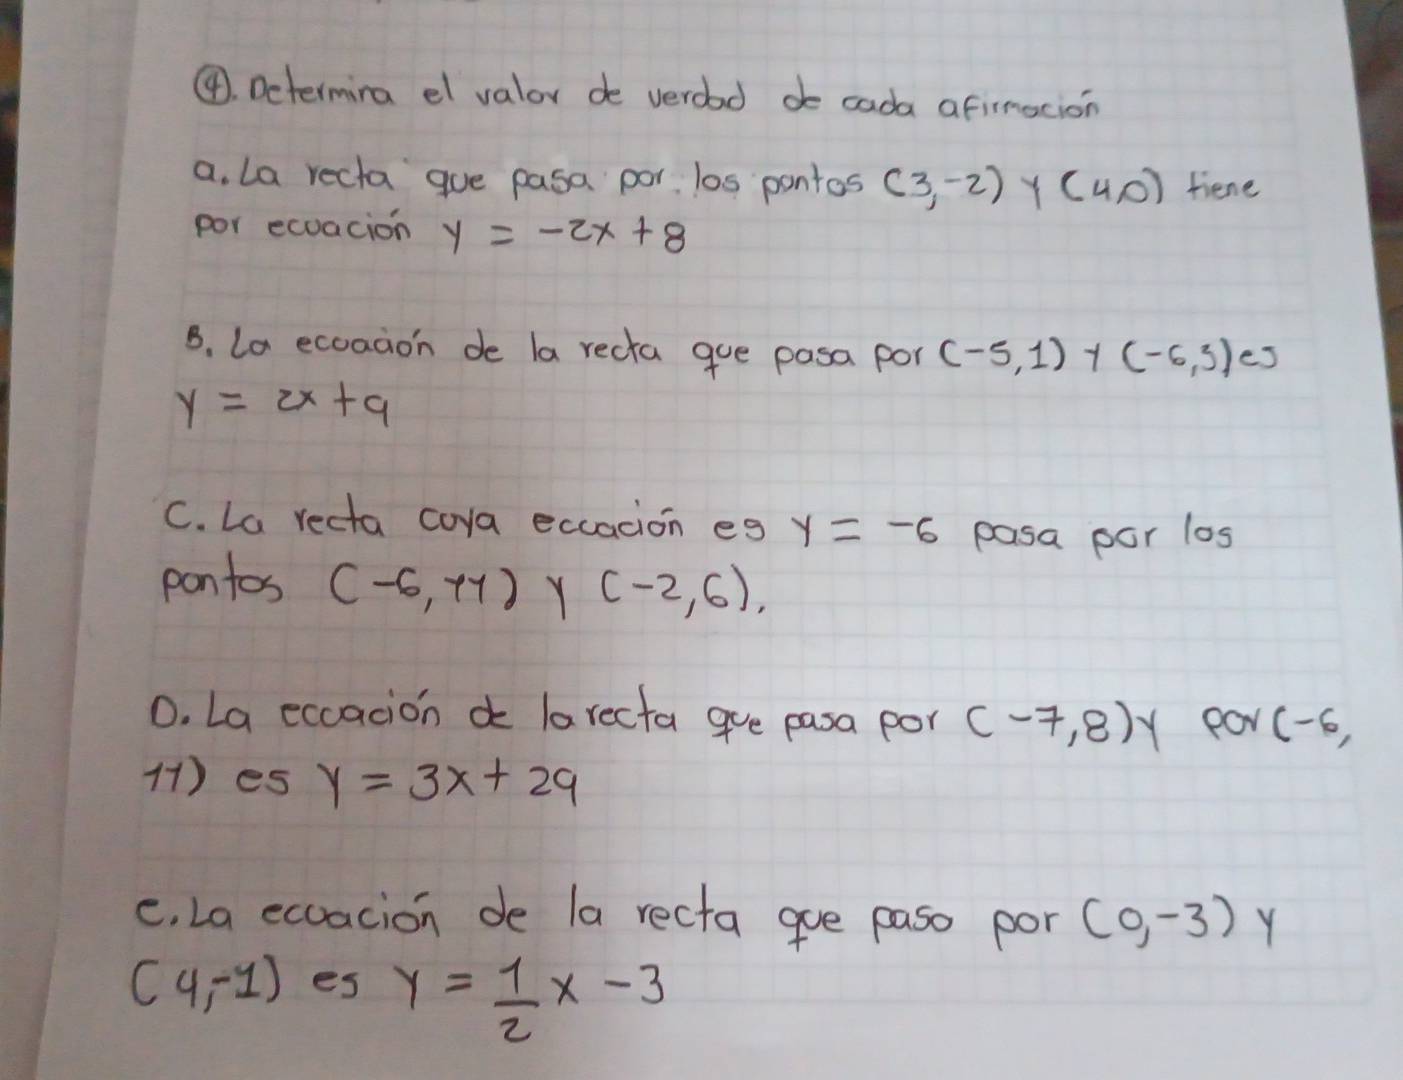 ④. Determina el valor de verdad de cada afirmación
a. La recta que pasa por los pontos (3,-2) y (4,0) tiene
por ecuación y = -2x + 8
B. La ecuación de la recta que pasa por (-5,1) y (-6,3) es
y = 2x + 9
C. La recta cuya ecuación es y = -6 pasa por los
pontos (-6,11) y (-2,6).
D. La ecuación de la recta que pasa por (-7,8) y por (-6,
11) es y = 3x + 29
e. La ecuación de la recta que paso por (0,-3) y
(4,-1) es y = 1/2 x - 3